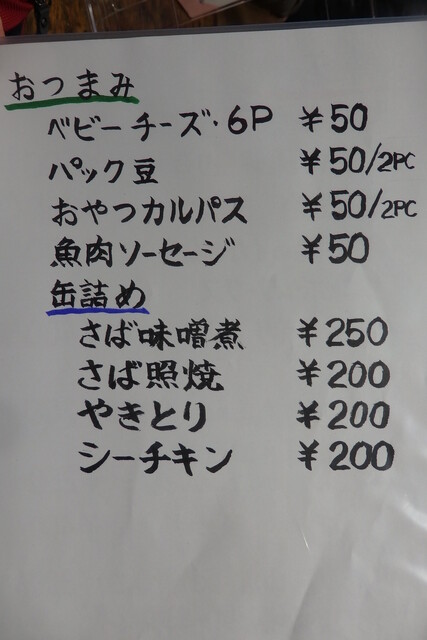 おつまみ
ベビーチーズ・6P ¥50
パック豆 ¥50/2PC
おやつカルパス ¥50/2PC
魚肉ソーセージ ¥50
缶詰め
さば味噌煮 ¥250
さば照焼 ¥200
やきとり ¥200
シーチキン ¥200